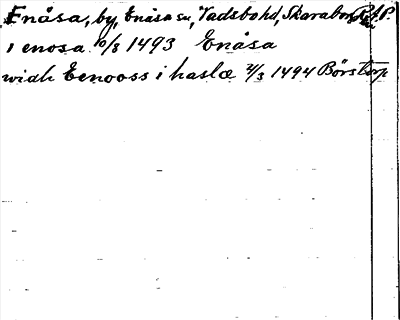 Enåsa, by, Enåsa sn, Vadsbo hd, Skarabor R.A.P.
i enosa 10/8 1493 Enåsa
widh Eenooss i haslæ 2/3 1494 Börstorp